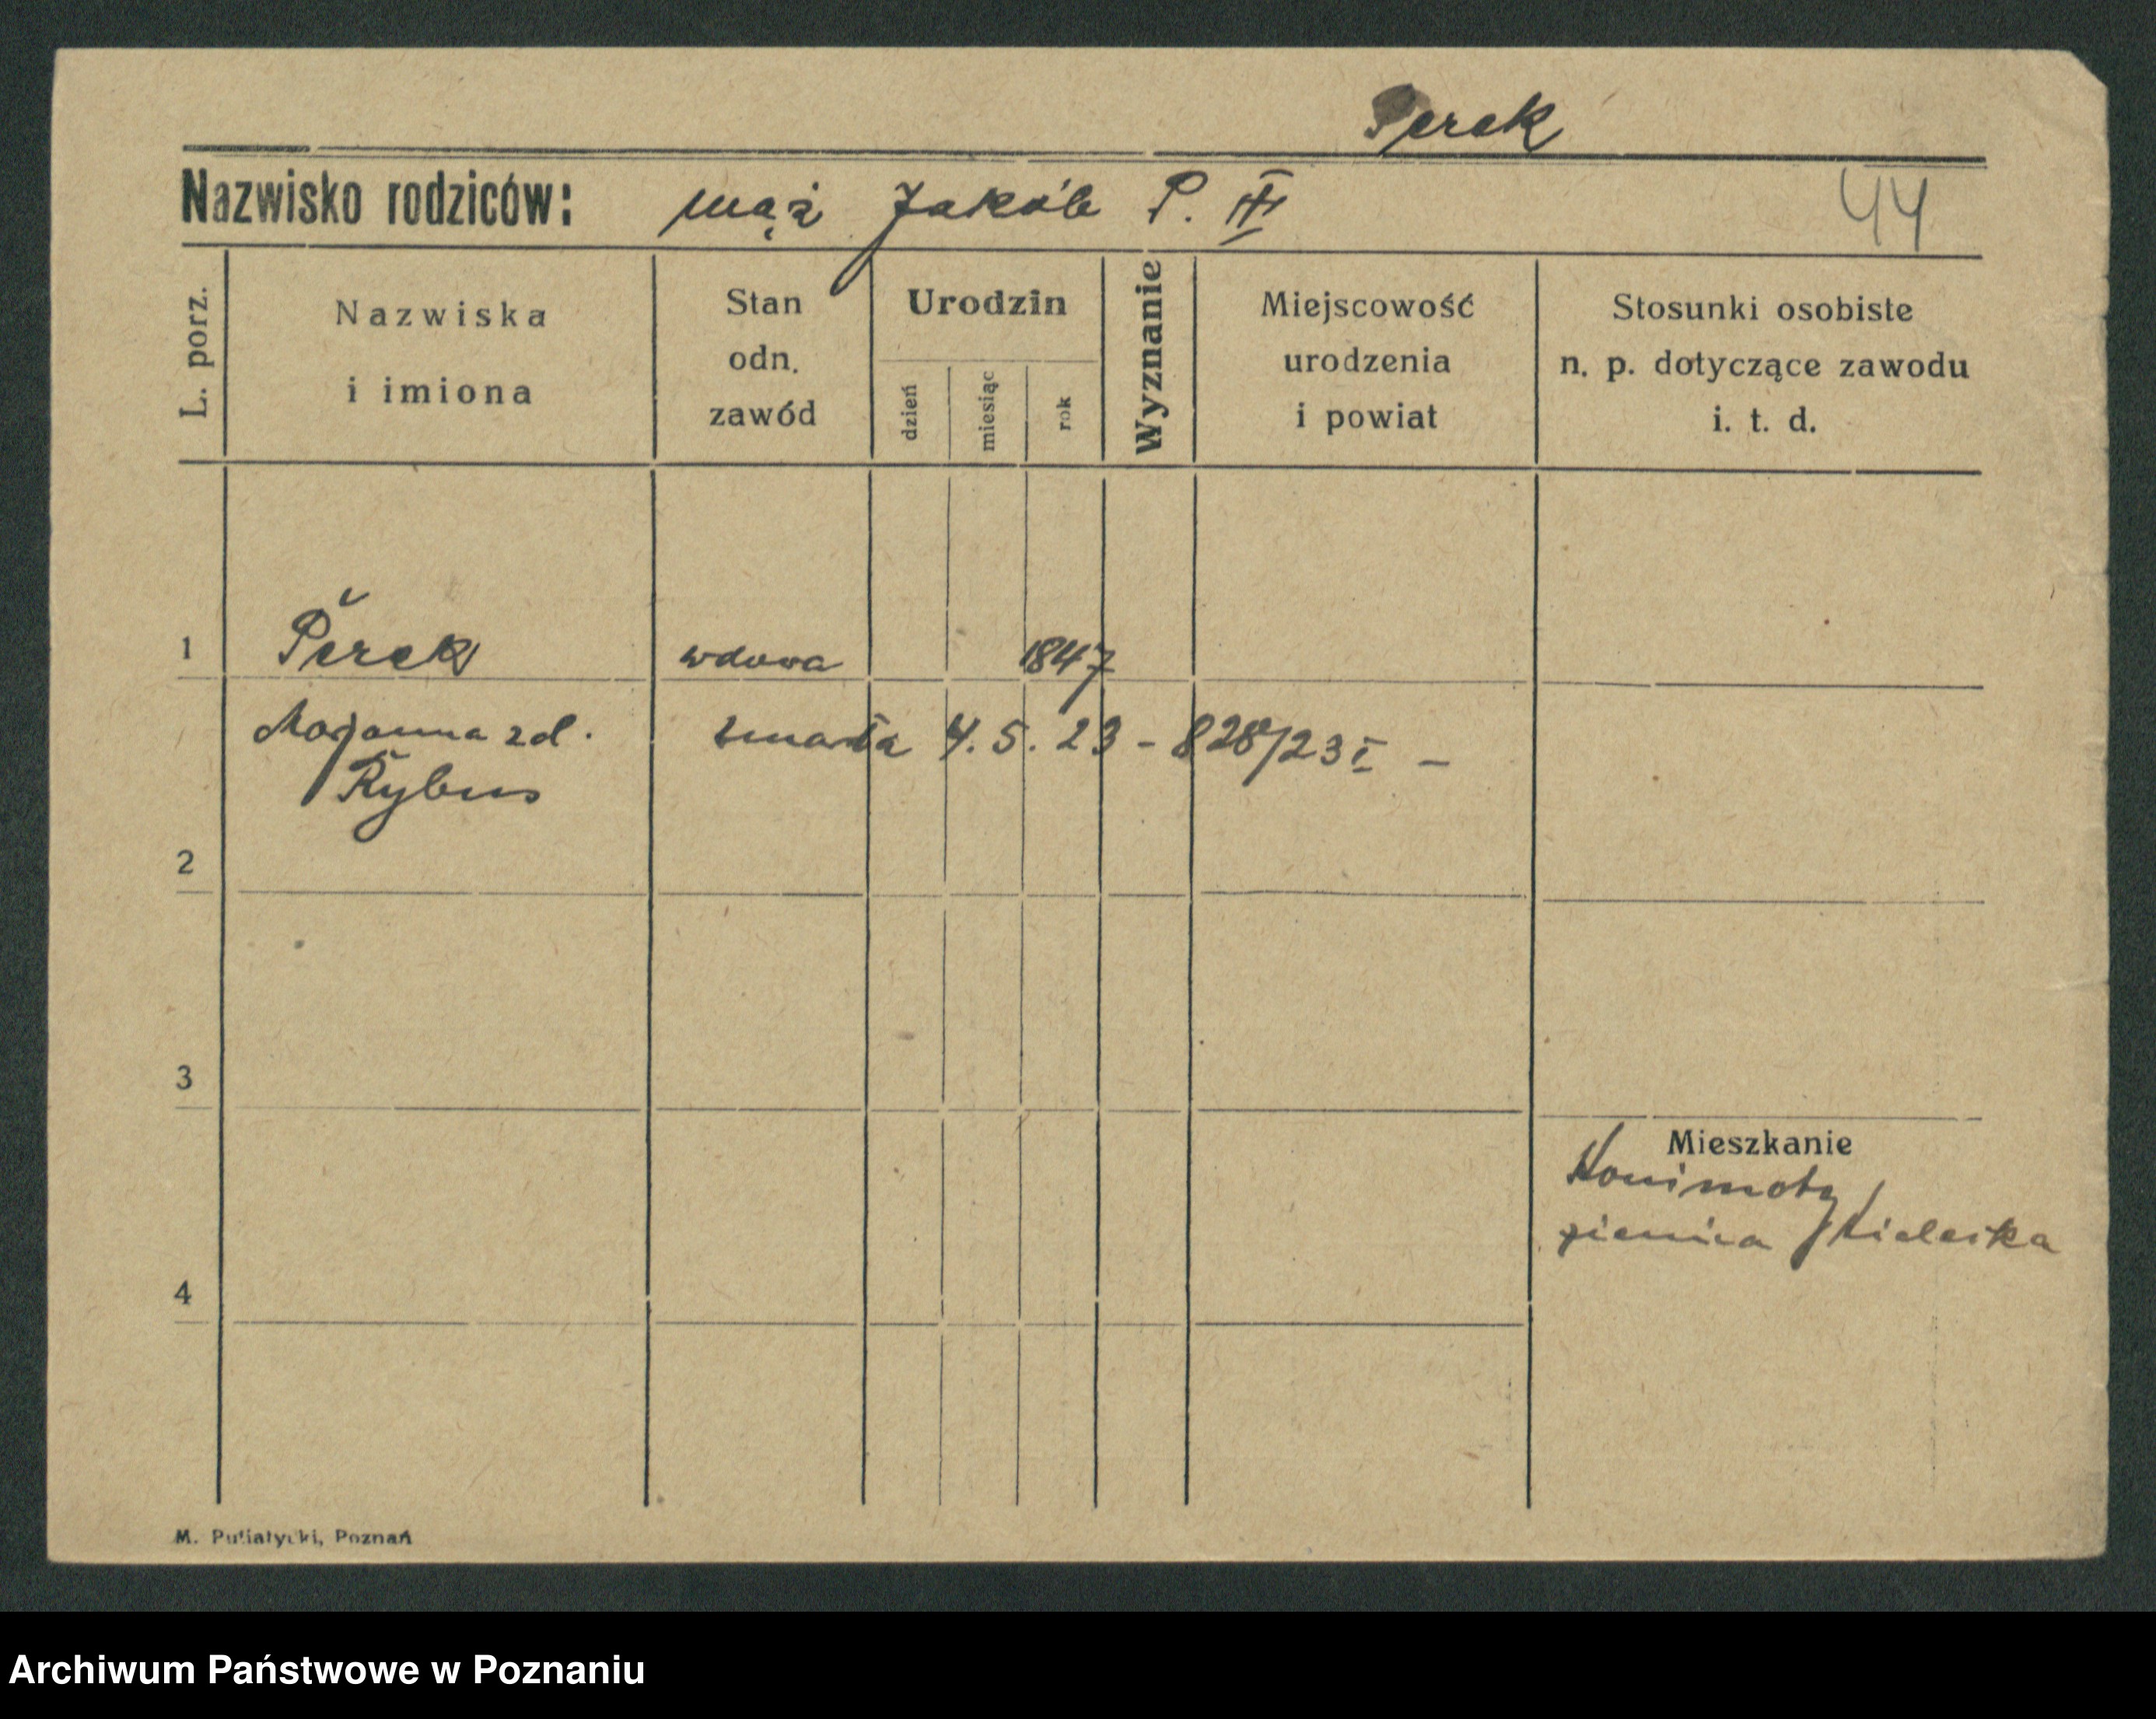 Perek
Nazwisko rodziców: mąż Jakób P. III
44
L. porz.
Nazwiska
i imiona
Stan
odn.
zawód
Urodzin
dzień
miesiąc
rok
Wyznanie
Miejscowość
urodzenia
i powiat
Stosunki osobiste
n. p. dotyczące zawodu
i. t. d.
1 Perek wdowa 1847
Marjanna zd. zmarła 4. 5. 23 - 828/23 I -
Rybus
2
3
Mieszkanie
ziemia
4
M. Putiatycki, Poznań
Archiwum Państwowe w Poznaniu